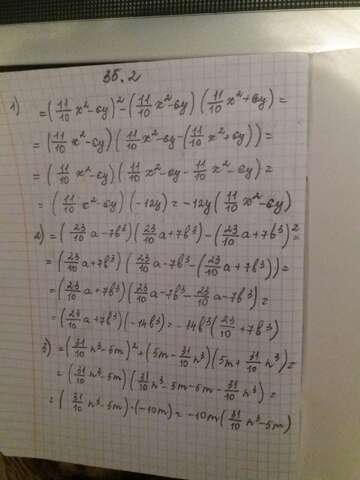 36.2
1) = (11/10 x² - 6y)² - (11/10 x² - 6y) (11/10 x² + 6y) =
= (11/10 x² - 6y) (11/10 x² - 6y - (11/10 x² + 6y)) =
= (11/10 x² - 6y) (11/10 x² - 6y - 11/10 x² - 6y) =
= (11/10 x² - 6y) (-12y) = -12y (11/10 x² - 6y)
2) = (23/10 a - 7b³) (23/10 a + 7b³) - (23/10 a + 7b³)² =
= (23/10 a + 7b³) (23/10 a - 7b³ - (23/10 a + 7b³)) =
= (23/10 a + 7b³) (23/10 a - 7b³ - 23/10 a - 7b³) =
= (23/10 a + 7b³) (-14b³) = -14b³ (23/10 + 7b³)
3) = (31/10 n³ - 5m)² + (5m - 31/10 n³) (5m + 31/10 n³) =
= (31/10 n³ - 5m) (31/10 n³ - 5m - 5m - 31/10 n³) =
= (31/10 n³ - 5m) · (-10m) = -10m (31/10 n³ - 5m)